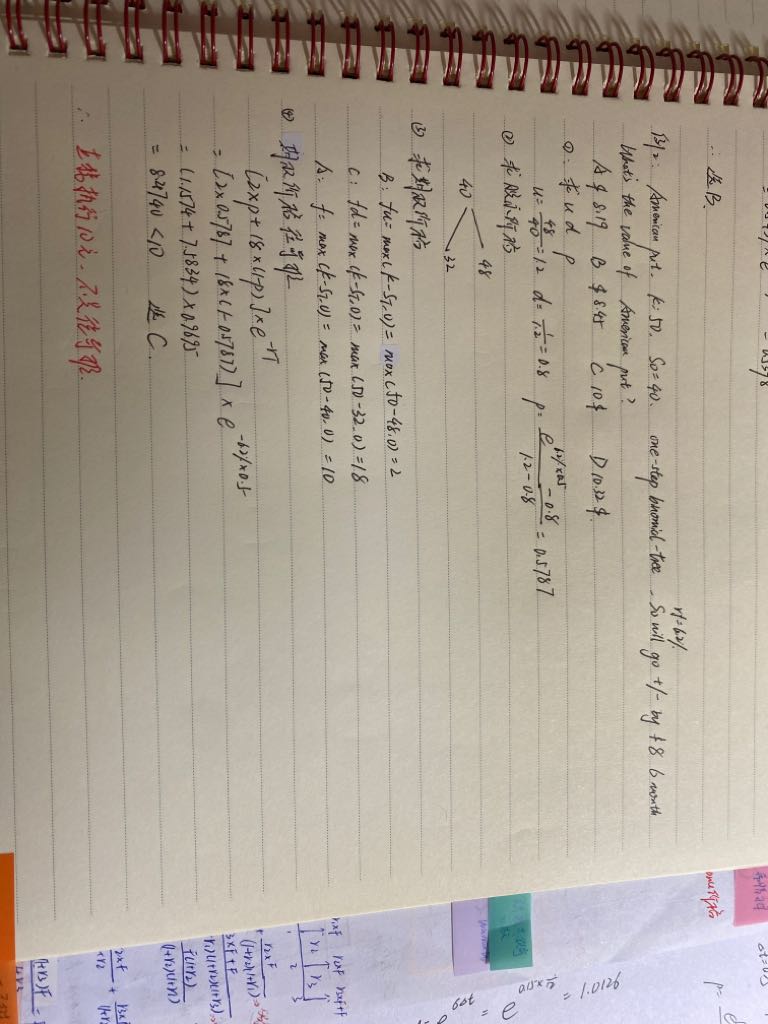 ∴ 选B.
例2: American put. K: 50. S0=40. one-step binomial-tree. S0 will go +/- by $8 6 month
rf=6%.
What's the value of American put?
A $8.19 B $8.45 C 10$ D 10.32$.
①: 求 u d p
u = 48/40 = 1.2 d = 1/1.2 = 0.8 p = (e^6%×0.5 - 0.8)/(1.2-0.8) = 0.5787
② 求股票价格
48
40
32
③ 求期权价格
B: fu = max(K-ST,0) = max(50-48,0) = 2
C: fd = max(K-ST,0) = max(50-32,0) = 18
A: f = max(K-ST,0) = max(50-40,0) = 10
④ 期权价格往前推
[2×p + 18×(1-p)] × e^-rT
= [2×0.5787 + 18×(1-0.5787)] × e^-6%×0.5
= (1.1574 + 7.5834) × 0.9695
= 8.4740 < 10 选 C.
∴ 直接执行10元, 不是往前推.